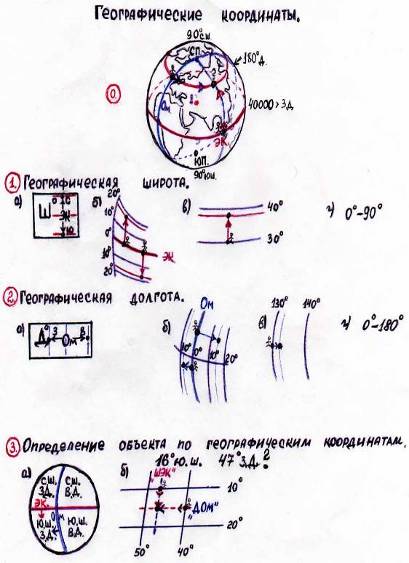 Географические координаты.
90°с.ш.
СП.
180°д.
0
Ом
40000 > З.Д.
ЭК.
ЮП.
90°ю.ш.
1. Географическая широта.
а) б) в) г) 0°-90°
Ш° С
ЭК
Ю
20°
10°
0°
10°
20°
ЭК
40°
30°
2. Географическая долгота.
а) б) в) г) 0°-180°
Д° З Ом В
Ом
10° 0° 10° 20°
130° 140°
3. Определение объекта по географическим координатам.
16° ю.ш. 47° з.д.?
а) б)
С.Ш. З.Д.
С.Ш. В.Д.
ЭК.
Ом
Ю.Ш. З.Д.
Ю.Ш. В.Д.
"ШЭК"
10°
"ДОМ"
20°
50° 40°